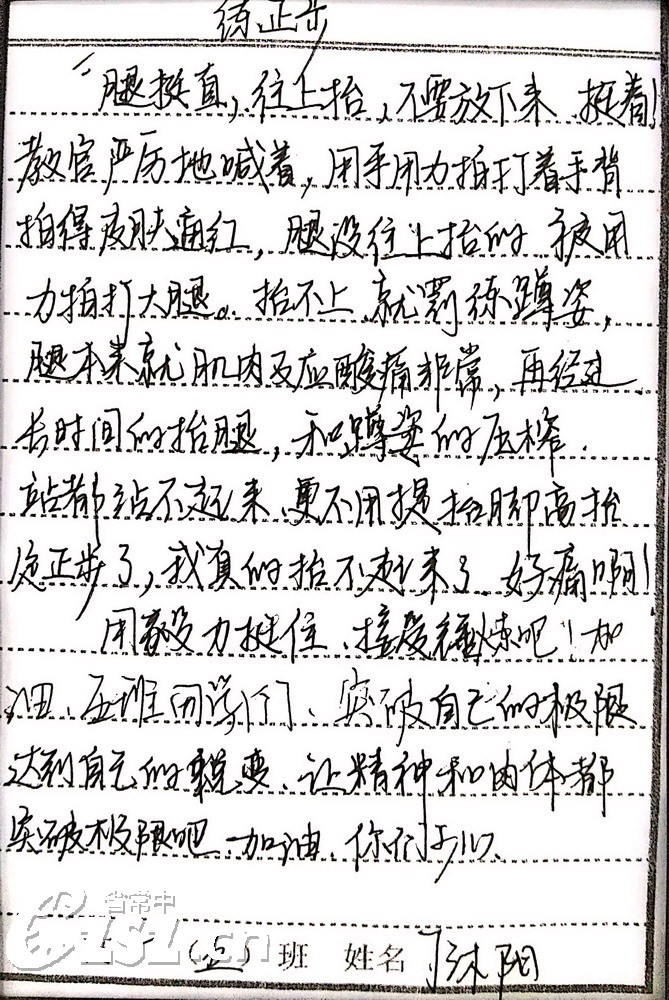 练正步
“腿挺直，往上抬，不要放下来，挺着！
教官严厉地喊着，用手用力拍打着手背
拍得皮肤通红，腿没往上抬的，被用
力拍打大腿。抬不上，就罚练蹲姿，
腿本来就肌肉反应酸痛非常，再经过
长时间的抬腿，和蹲姿的压榨.
站都站不起来，更不用提抬脚高抬
走正步了，我真的抬不起来了，好痛啊！
用毅力挺住，接受锤炼吧！加
油、五班同学们、突破自己的极限
达到自己的蜕变、让精神和肉体都
突破极限吧，加油，你们可以.
省常中
CZSLSZ.cn
(五) 班 姓名 丁沐阳